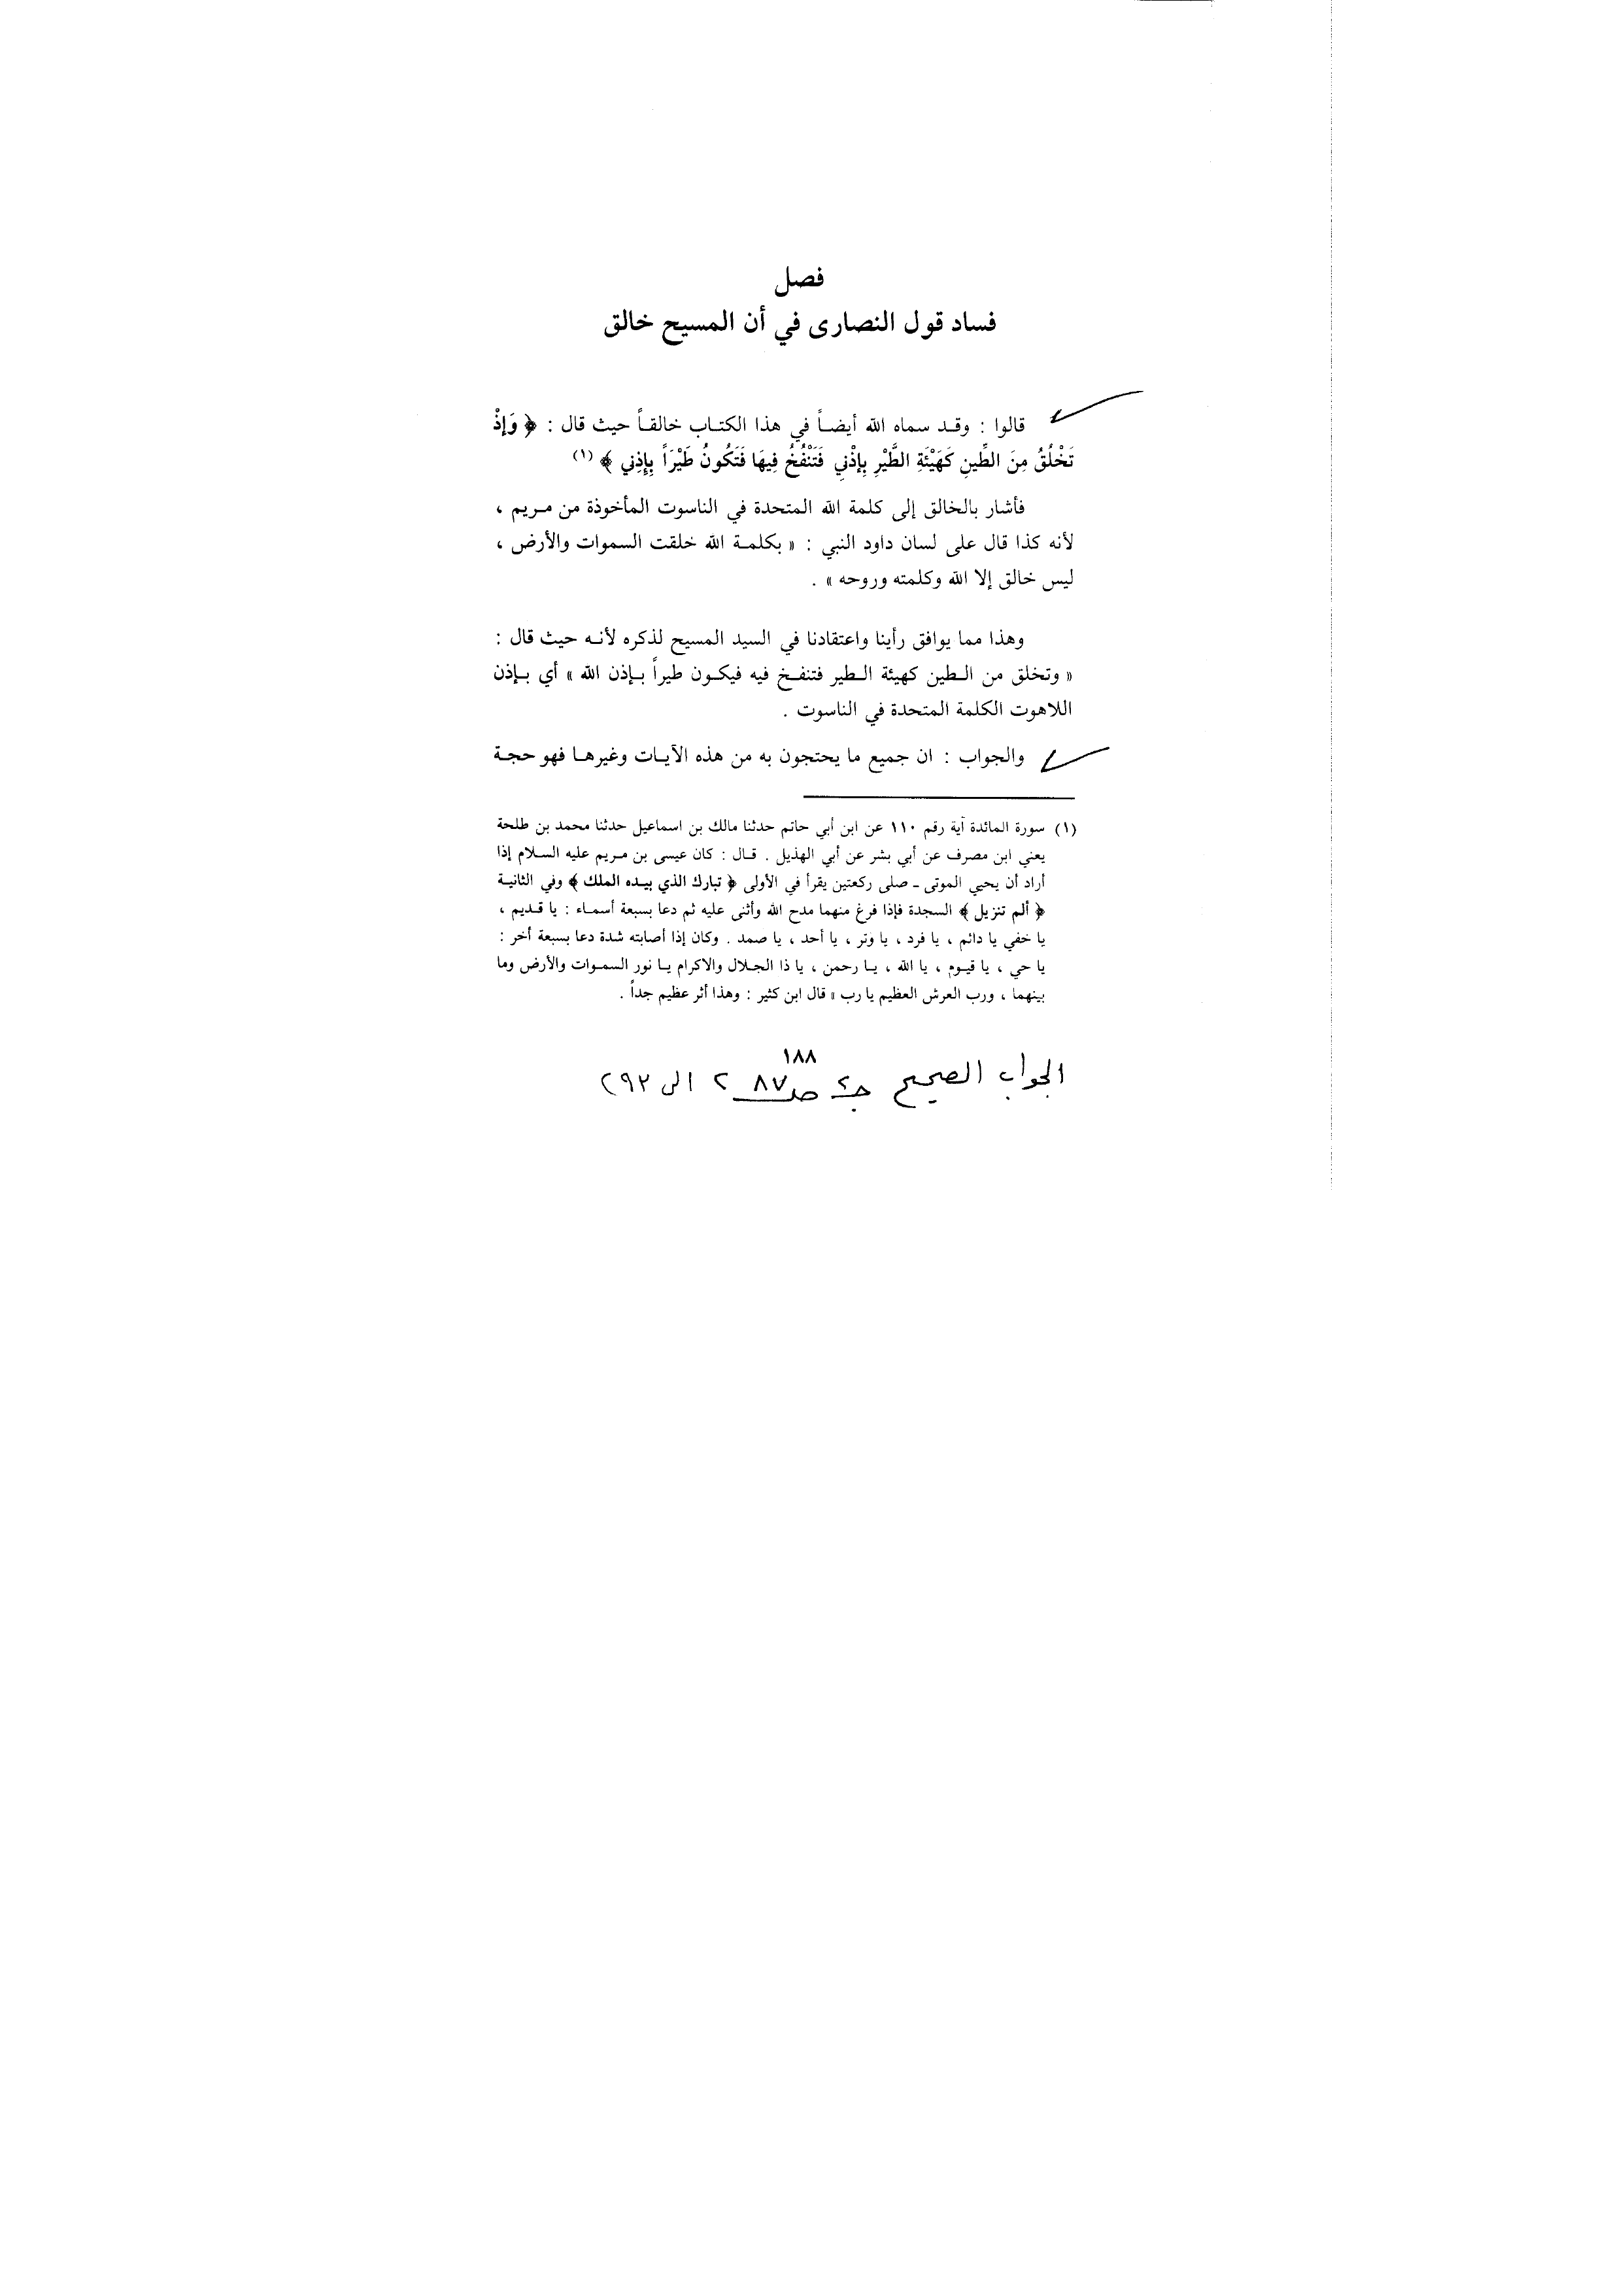 فصل
فساد قول النصارى في أن المسيح خالق
قالوا : وقد سماه الله أيضاً في هذا الكتاب خالقاً حيث قال : ﴿ وَإِذْ
تَخْلُقُ مِنَ الطِّينِ كَهَيْئَةِ الطَّيْرِ بِإِذْنِي فَتَنْفُخُ فِيهَا فَتَكُونُ طَيْرَاً بِإِذِني ﴾ (١)
فأشار بالخالق إلى كلمة الله المتحدة في الناسوت المأخوذة من مريم ،
لأنه كذا قال على لسان داود النبي : « بكلمة الله خلقت السموات والأرض ،
ليس خالق إلا الله وكلمته وروحه » .
وهذا مما يوافق رأينا واعتقادنا في السيد المسيح لذكره لأنه حيث قال :
« وتخلق من الطين كهيئة الطير فتنفخ فيه فيكون طيراً بإذن الله » أي بإذن
اللاهوت الكلمة المتحدة في الناسوت .
والجواب : ان جميع ما يحتجون به من هذه الآيات وغيرها فهو حجة
(١) سورة المائدة آية رقم ١١٠ عن ابن أبي حاتم حدثنا مالك بن اسماعيل حدثنا محمد بن طلحة
يعني ابن مصرف عن أبي بشر عن أبي الهذيل . قال : كان عيسى بن مريم عليه السلام إذا
أراد أن يحيي الموتى ـ صلى ركعتين يقرأ في الأولى ﴿ تبارك الذي بيده الملك ﴾ وفي الثانية
﴿ ألم تنزيل ﴾ السجدة فإذا فرغ منهما مدح الله وأثنى عليه ثم دعا بسبعة أسماء : يا قديم ،
يا خفي يا دائم ، يا فرد ، يا وتر ، يا أحد ، يا صمد . وكان إذا أصابته شدة دعا بسبعة أخر :
يا حي ، يا قيوم ، يا الله ، يا رحمن ، يا ذا الجلال والاكرام يا نور السموات والأرض وما
بينهما ، ورب العرش العظيم يا رب » قال ابن كثير : وهذا أثر عظيم جداً .
١٨٨
الجواب الصحيح جـ٢ صـ ٢٨٧ الى ٢٩٢